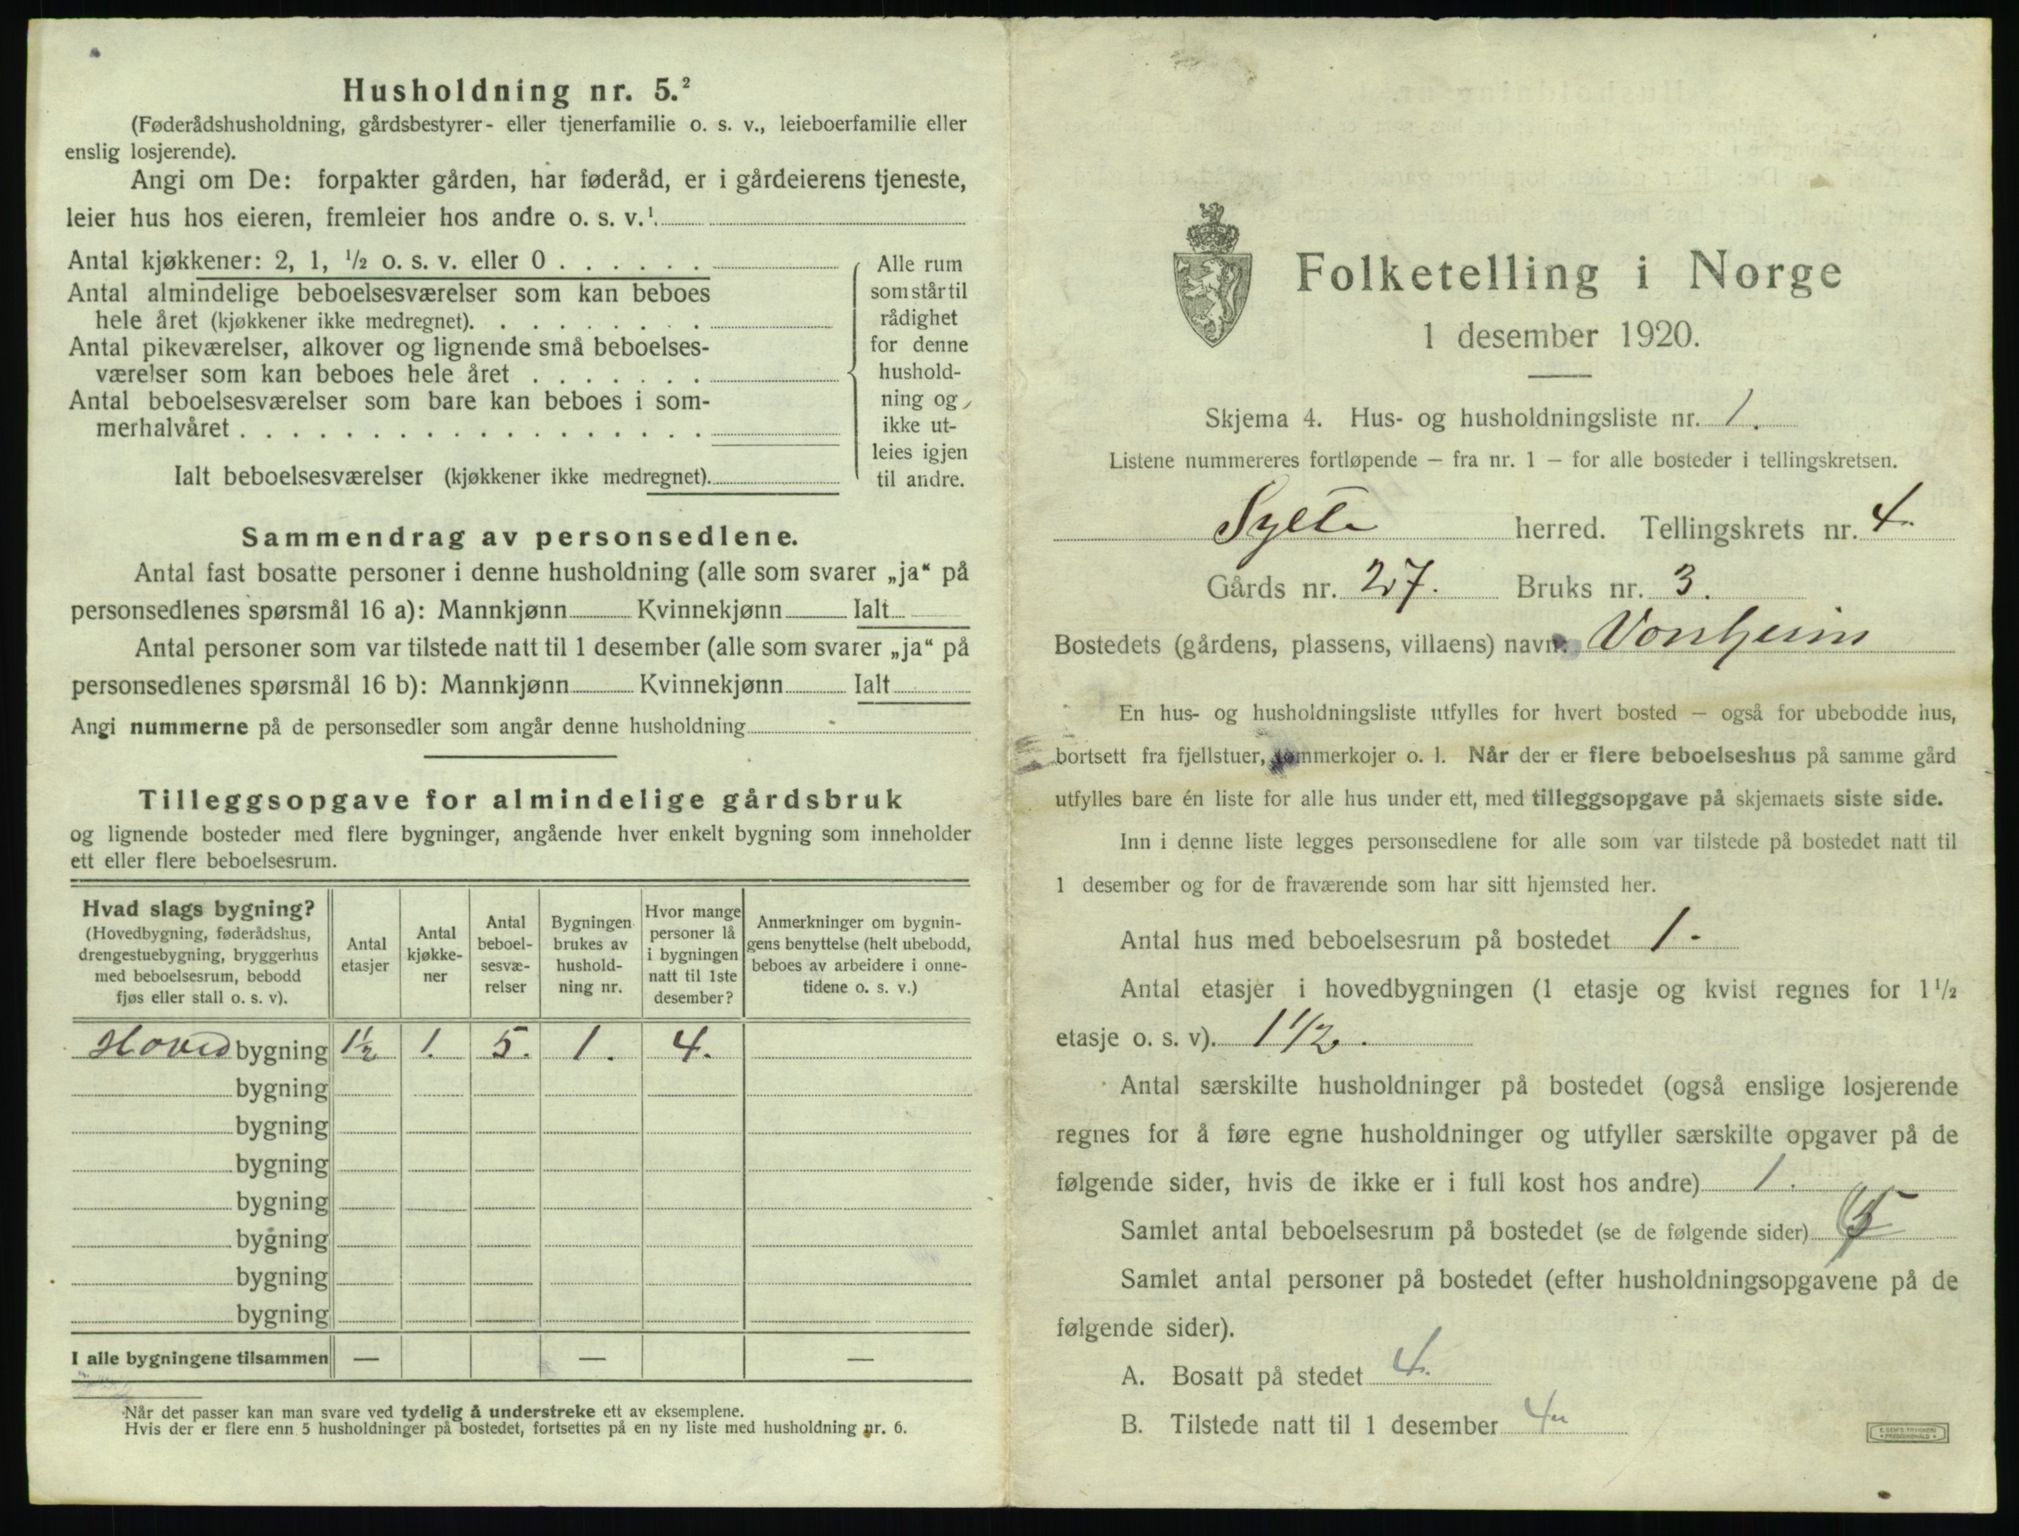 Husholdning nr. 5.²
(Føderådshusholdning, gårdsbestyrer- eller tjenerfamilie o. s. v., leieboerfamilie eller
enslig losjerende).
Angi om De: forpakter gården, har føderåd, er i gårdeierens tjeneste,
leier hus hos eieren, fremleier hos andre o. s. v.¹
Antal kjøkkener: 2, 1, ½ o. s. v. eller 0
Antal almindelige beboelsesværelser som kan beboes
hele året (kjøkkener ikke medregnet).
Antal pikeværelser, alkover og lignende små beboelses-
værelser som kan beboes hele året
Antal beboelsesværelser som bare kan beboes i som-
merhalvåret
Ialt beboelsesværelser (kjøkkener ikke medregnet)
Alle rum
som står til
rådighet
for denne
hushold-
ning og
ikke ut-
leies igjen
til andre.
Sammendrag av personsedlene.
Antal fast bosatte personer i denne husholdning (alle som svarer „ja“ på
personsedlenes spørsmål 16 a): Mannkjønn Kvinnekjønn Ialt
Antal personer som var tilstede natt til 1 desember (alle som svarer „ja“ på
personsedlenes spørsmål 16 b): Mannkjønn Kvinnekjønn Ialt
Angi nummerne på de personsedler som angår denne husholdning
Tilleggsopgave for almindelige gårdsbruk
og lignende bosteder med flere bygninger, angående hver enkelt bygning som inneholder
ett eller flere beboelsesrum.
Hvad slags bygning?
(Hovedbygning, føderådshus,
drengestuebygning, bryggerhus
med beboelsesrum, bebodd
fjøs eller stall o. s. v).
Antal
etasjer
Antal
kjøkke-
ner
Antal
beboel-
sesvæ-
relser
Bygningen
brukes av
hushold-
ning nr.
Hvor mange
personer lå
i bygningen
natt til 1ste
desember?
Anmerkninger om bygnin-
gens benyttelse (helt ubebodd,
beboes av arbeidere i onne-
tidene o. s. v.)
Hoved bygning 1½ 1. 5. 1. 4.
bygning
bygning
bygning
bygning
bygning
bygning
bygning
I alle bygningene tilsammen — — —
Når det passer kan man svare ved tydelig å understreke ett av eksemplene.
Hvis der er flere enn 5 husholdninger på bostedet, fortsettes på en ny liste med husholdning nr. 6.
Folketelling i Norge
1 desember 1920.
Skjema 4. Hus- og husholdningsliste nr. 1.
Listene nummereres fortløpende – fra nr. 1 – for alle bosteder i tellingskretsen.
Sylte herred. Tellingskrets nr. 4.
Gårds nr. 27. Bruks nr. 3.
Bostedets (gårdens, plassens, villaens) navn: Vonheim
En hus- og husholdningsliste utfylles for hvert bosted – også for ubebodde hus,
bortsett fra fjellstuer, tømmerkojer o. l. Når der er flere beboelseshus på samme gård
utfylles bare én liste for alle hus under ett, med tilleggsopgave på skjemaets siste side.
Inn i denne liste legges personsedlene for alle som var tilstede på bostedet natt til
1 desember og for de fraværende som har sitt hjemsted her.
Antal hus med beboelsesrum på bostedet 1.
Antal etasjer i hovedbygningen (1 etasje og kvist regnes for 1½
etasje o. s. v). 1½.
Antal særskilte husholdninger på bostedet (også enslige losjerende
regnes for å føre egne husholdninger og utfyller særskilte opgaver på de
følgende sider, hvis de ikke er i full kost hos andre) 1.
Samlet antal beboelsesrum på bostedet (se de følgende sider)
Samlet antal personer på bostedet (efter husholdningsopgavene på de
følgende sider).
A. Bosatt på stedet 4.
B. Tilstede natt til 1 desember 4